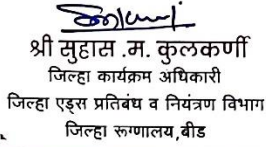 श्री सुहास .म. कुलकर्णी
जिल्हा कार्यक्रम अधिकारी
जिल्हा एड्स प्रतिबंध व नियंत्रण विभाग
जिल्हा रूग्णालय,बीड